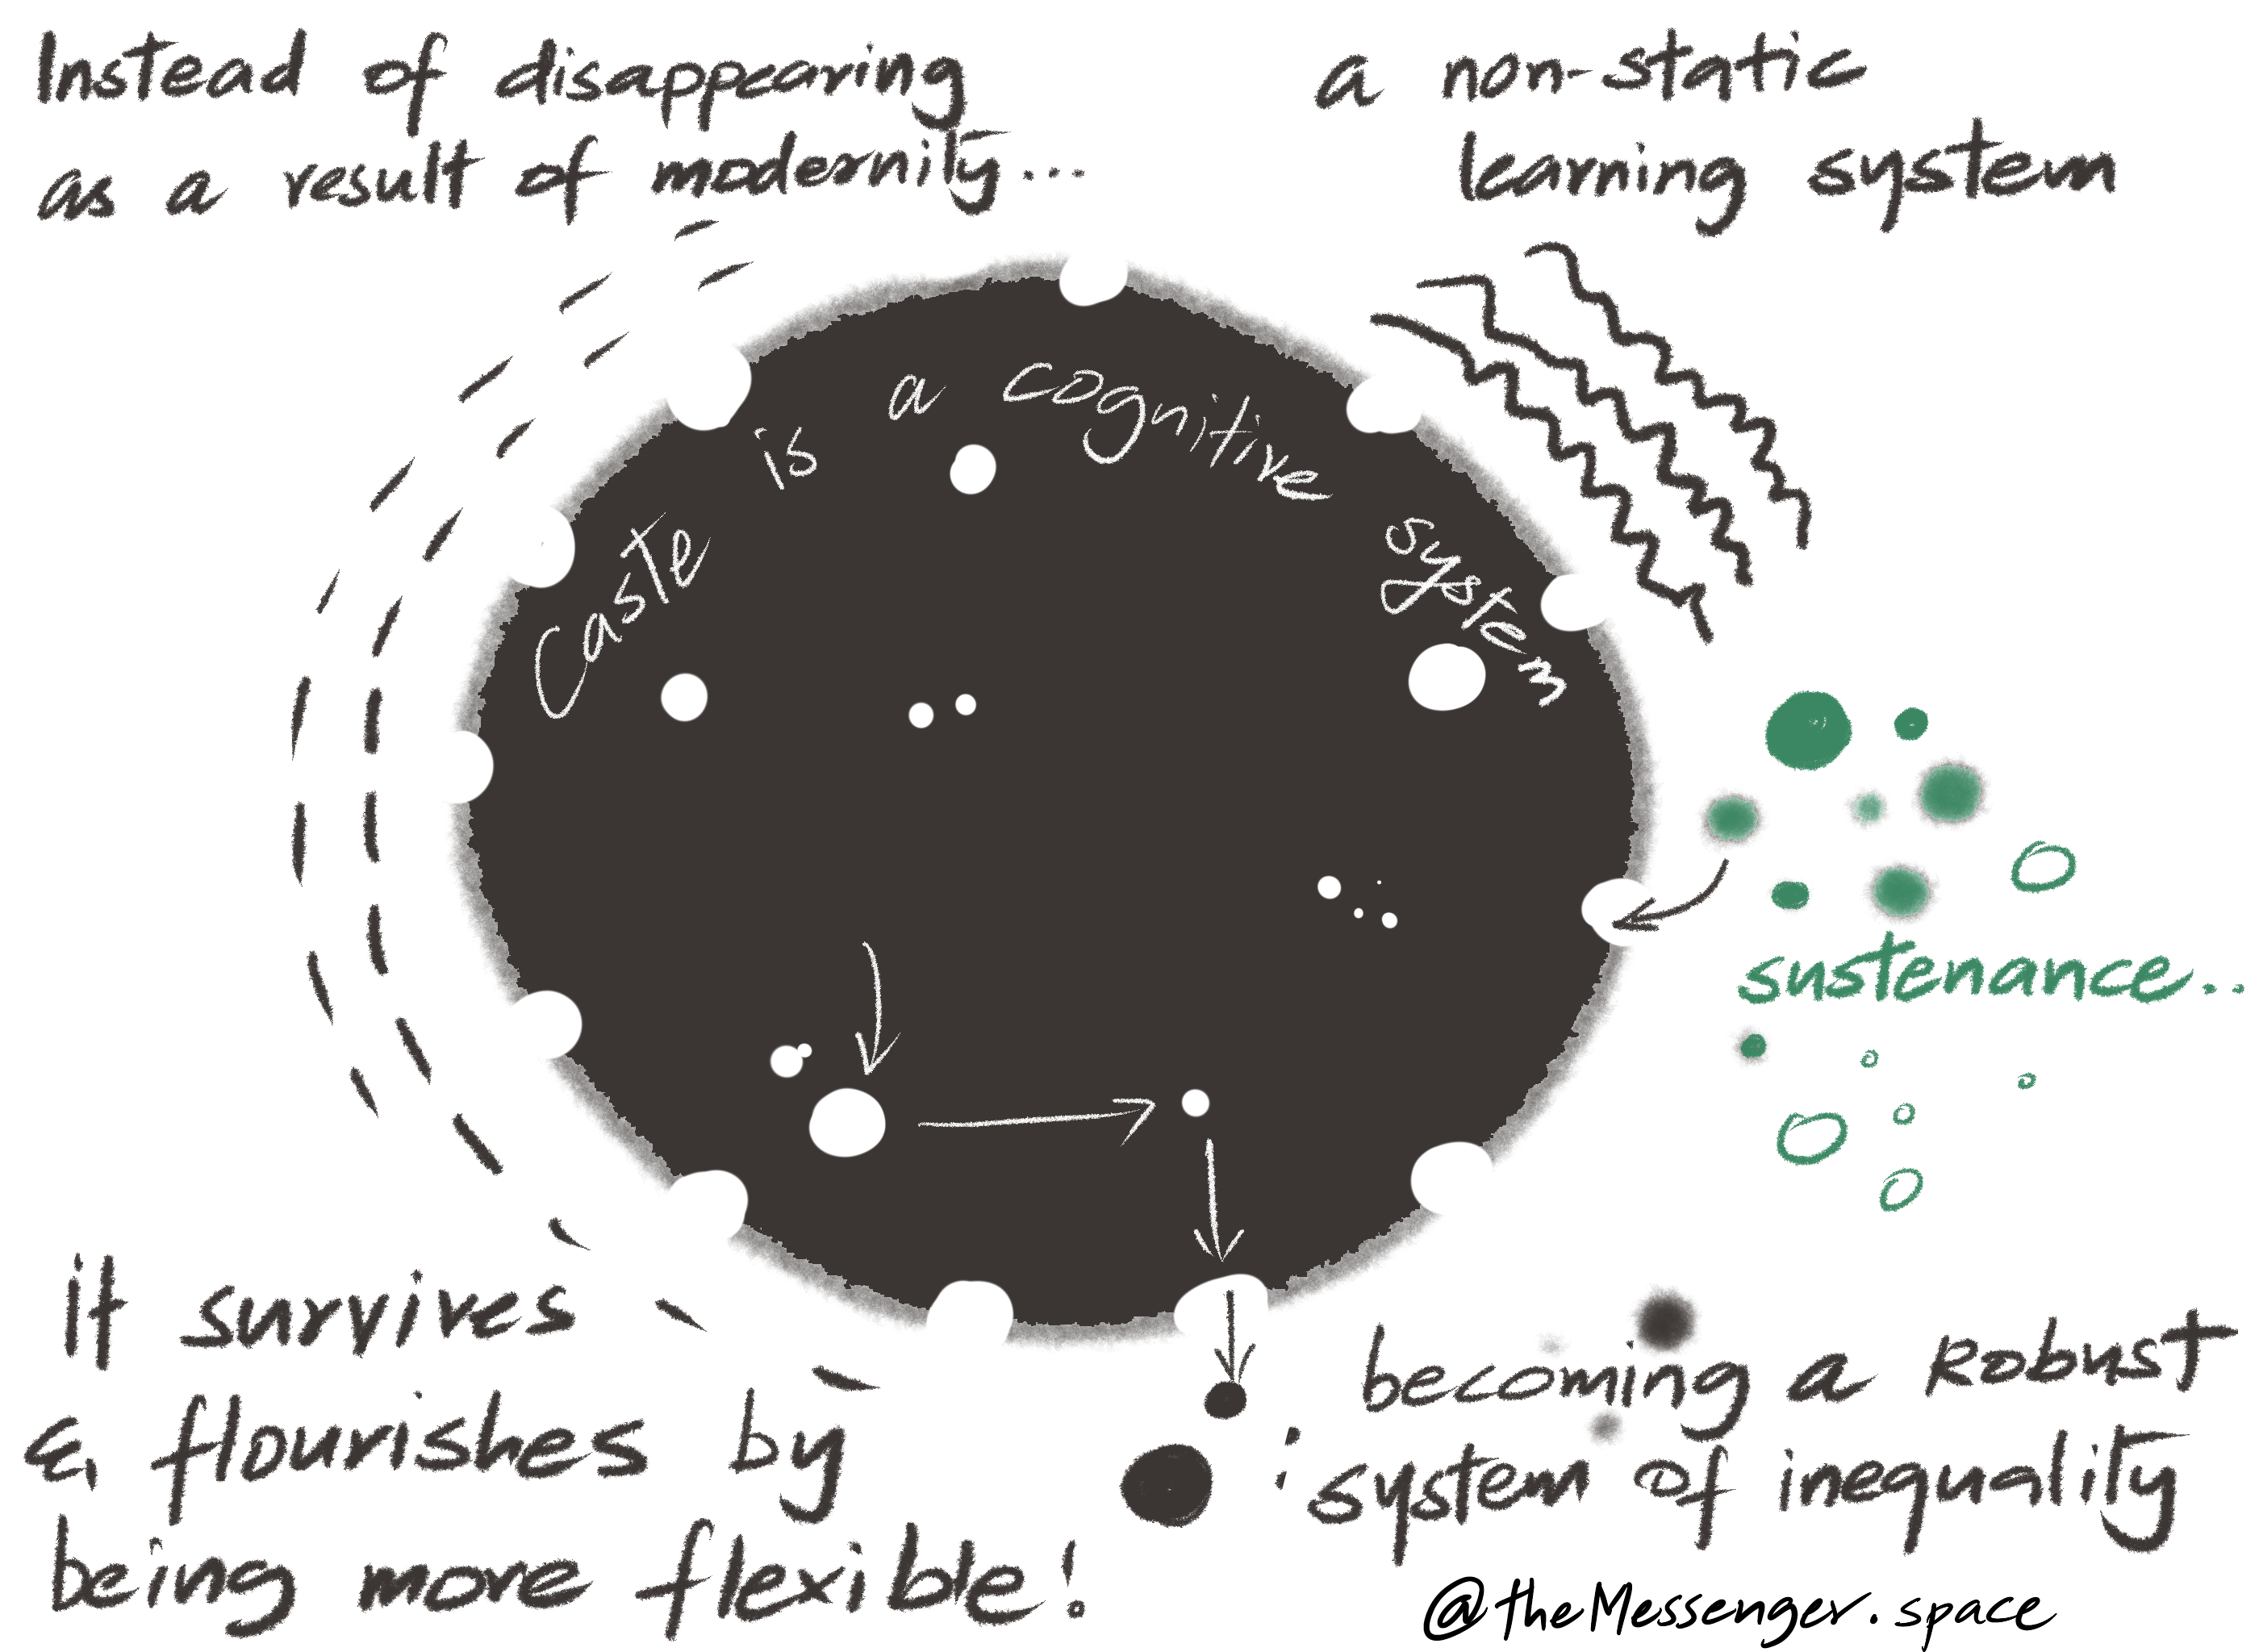 Instead of disappearing
as a result of modernity...
a non-static
learning system
Caste is a cognitive system
sustenance..
it survives
& flourishes by
being more flexible!
becoming a Robust
system of inequality
@theMessenger.space